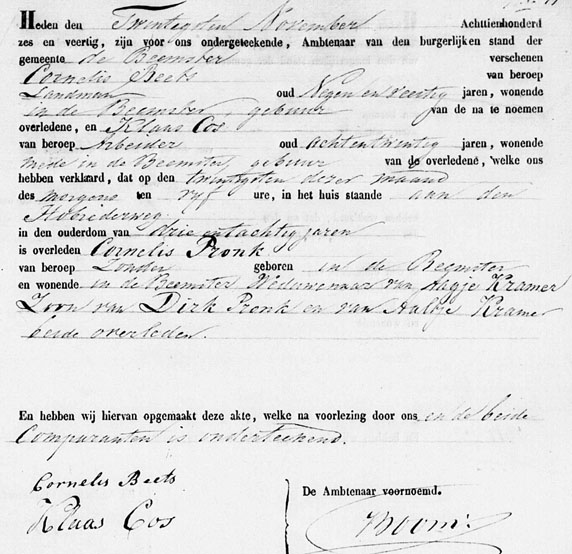 Heden den Twintigsten November Achttienhonderd
zes en veertig, zijn voor ons ondergeteekende, Ambtenaar van den burgerlijken stand der
gemeente de Beemster verschenen
Cornelis Beets van beroep
Landman oud Negen en veertig jaren, wonende
in de Beemster, gebuur van de na te noemen
overledene, en Klaas Cos
van beroep Arbeider oud achtentwintig jaren, wonende
mede in de Beemster, gebuur van de overledene, welke ons
hebben verklaard, dat op den twintigsten dezer maand
des morgens ten vyf ure, in het huis staande aan den
Hobrederweg
in den ouderdom van drie entachtig jaren
is overleden Cornelis Pronk
van beroep Zonder geboren in de Beemster
en wonende in de Beemster Weduwenaar van Aagje Kramer
Zoon van Dirk Pronk en van Aaltje Kramer
beide overleden.
En hebben wij hiervan opgemaakt deze akte, welke na voorlezing door ons en de beide
Comparanten is onderteekend.
Cornelis Beets
De Ambtenaar voornoemd.
Klaas Cos